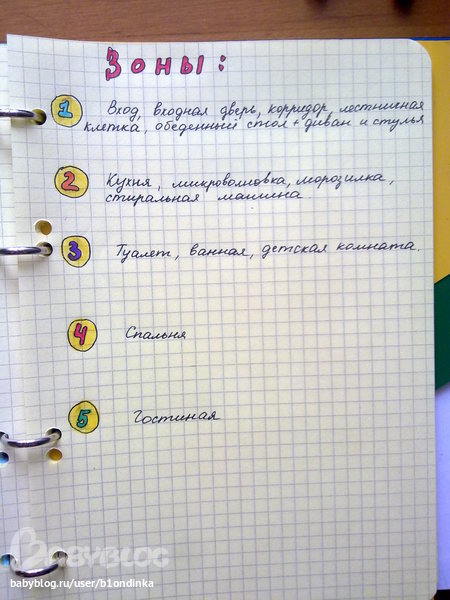 Зоны:
1 Вход, входная дверь, корридор, лестничная
клетка, обеденный стол + диван и стулья
2 Кухня, микроволновка, морозилка,
стиральная машина.
3 Туалет, ванная, детская комната.
4 Спальня
5 Гостиная
BABYBLOG
babyblog.ru/user/b1ondinka